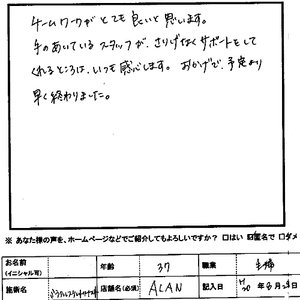 チームワークがとても良いと思います。
手のあいているスタッフが、さりげなくサポートをして
くれるところは、いつも感心します。おかげで、予定より
早く終わりました。
※ あなた様の声を、ホームページなどでご紹介してもよろしいですか? □はい ☑匿名で □ダメ
お名前 (イニシャル可) 年齢 37 職業 主婦
施術名 店舗名(必須) ALAN 記入日 H20年 月 日